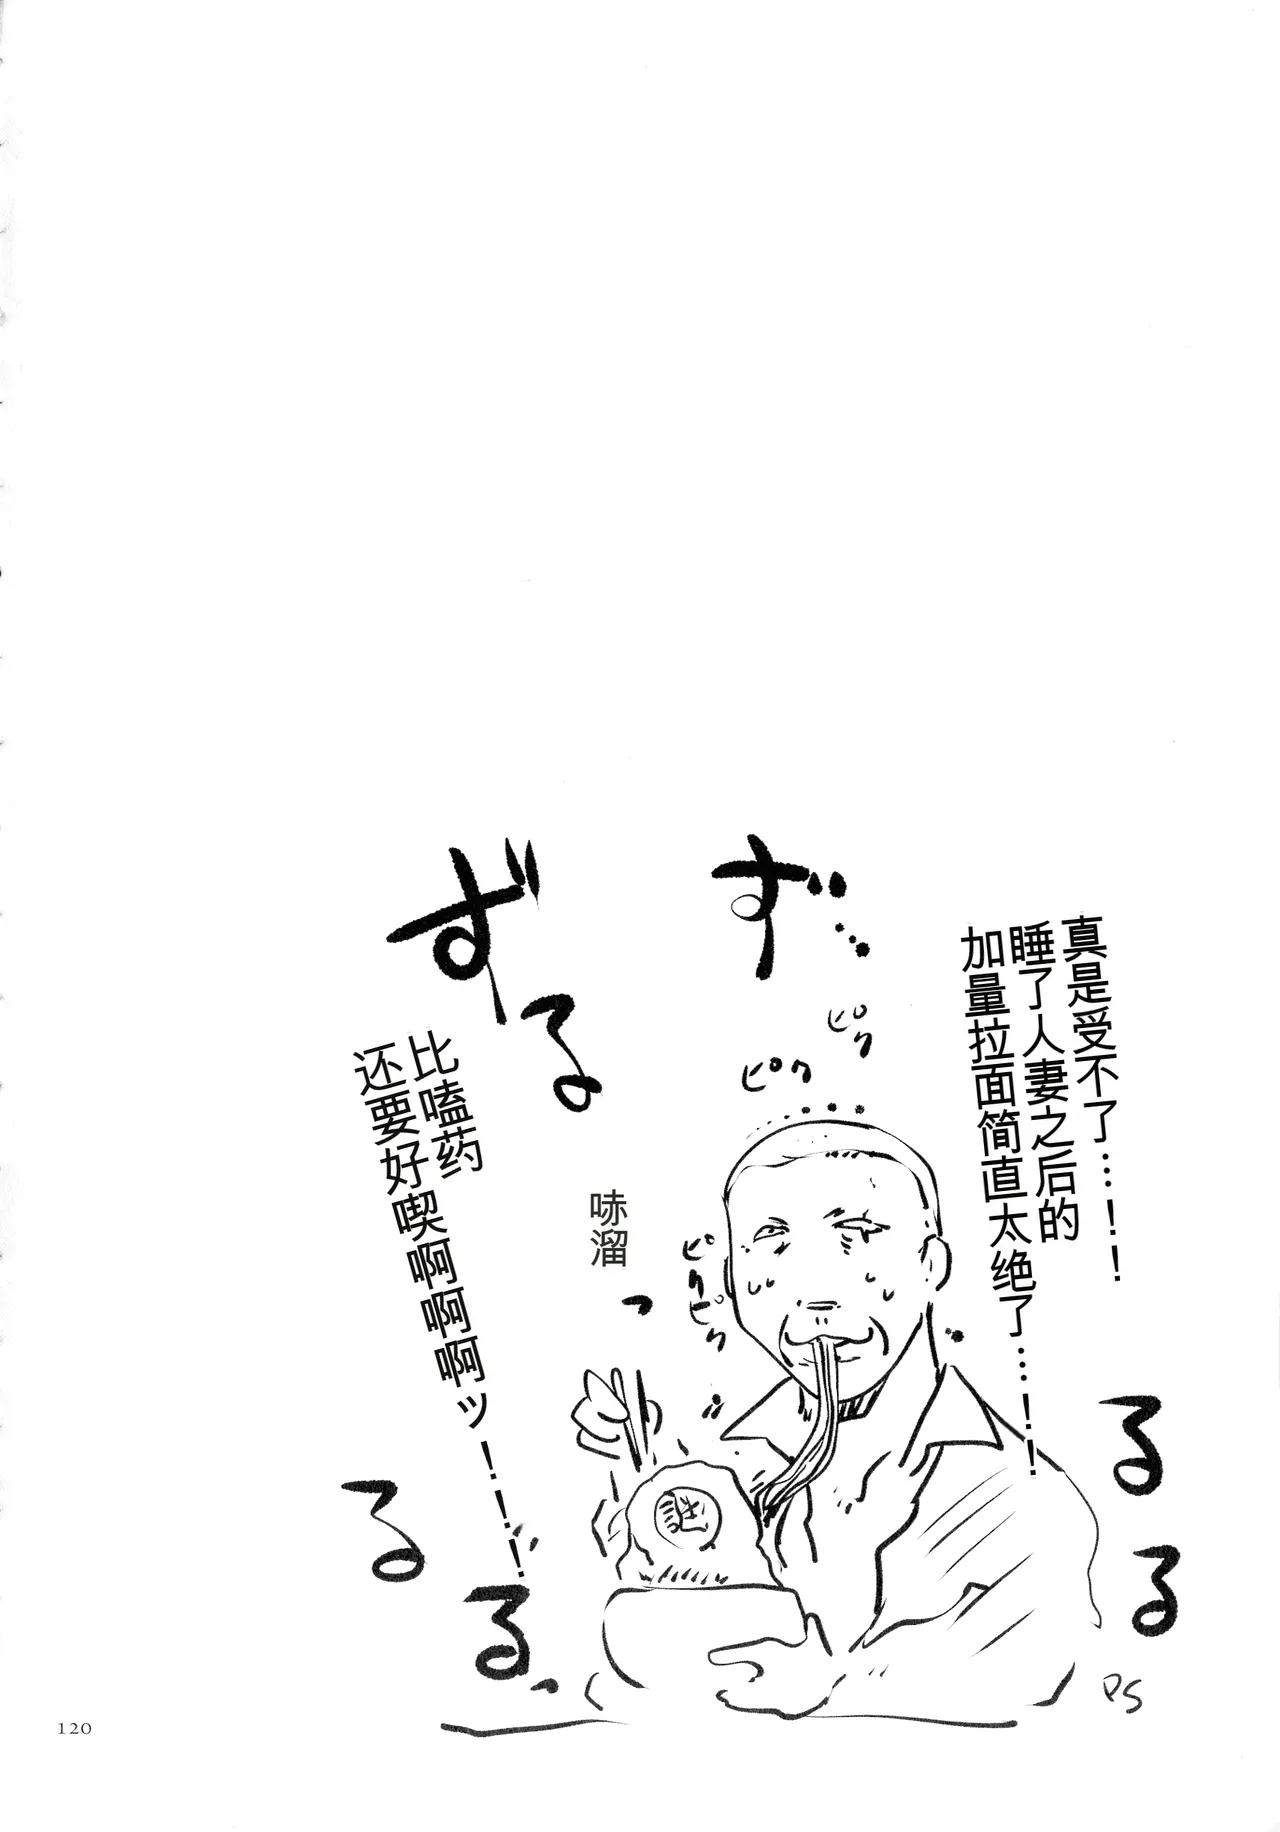 真是受不了…!!
睡了人妻之后的
加量拉面简直太绝了…!!
ず
ピク
ピク
ピク
ピク
哧溜
っ
ずる
比嗑药
还要好喫啊啊啊ッ!!!
るる
るる
PS
120